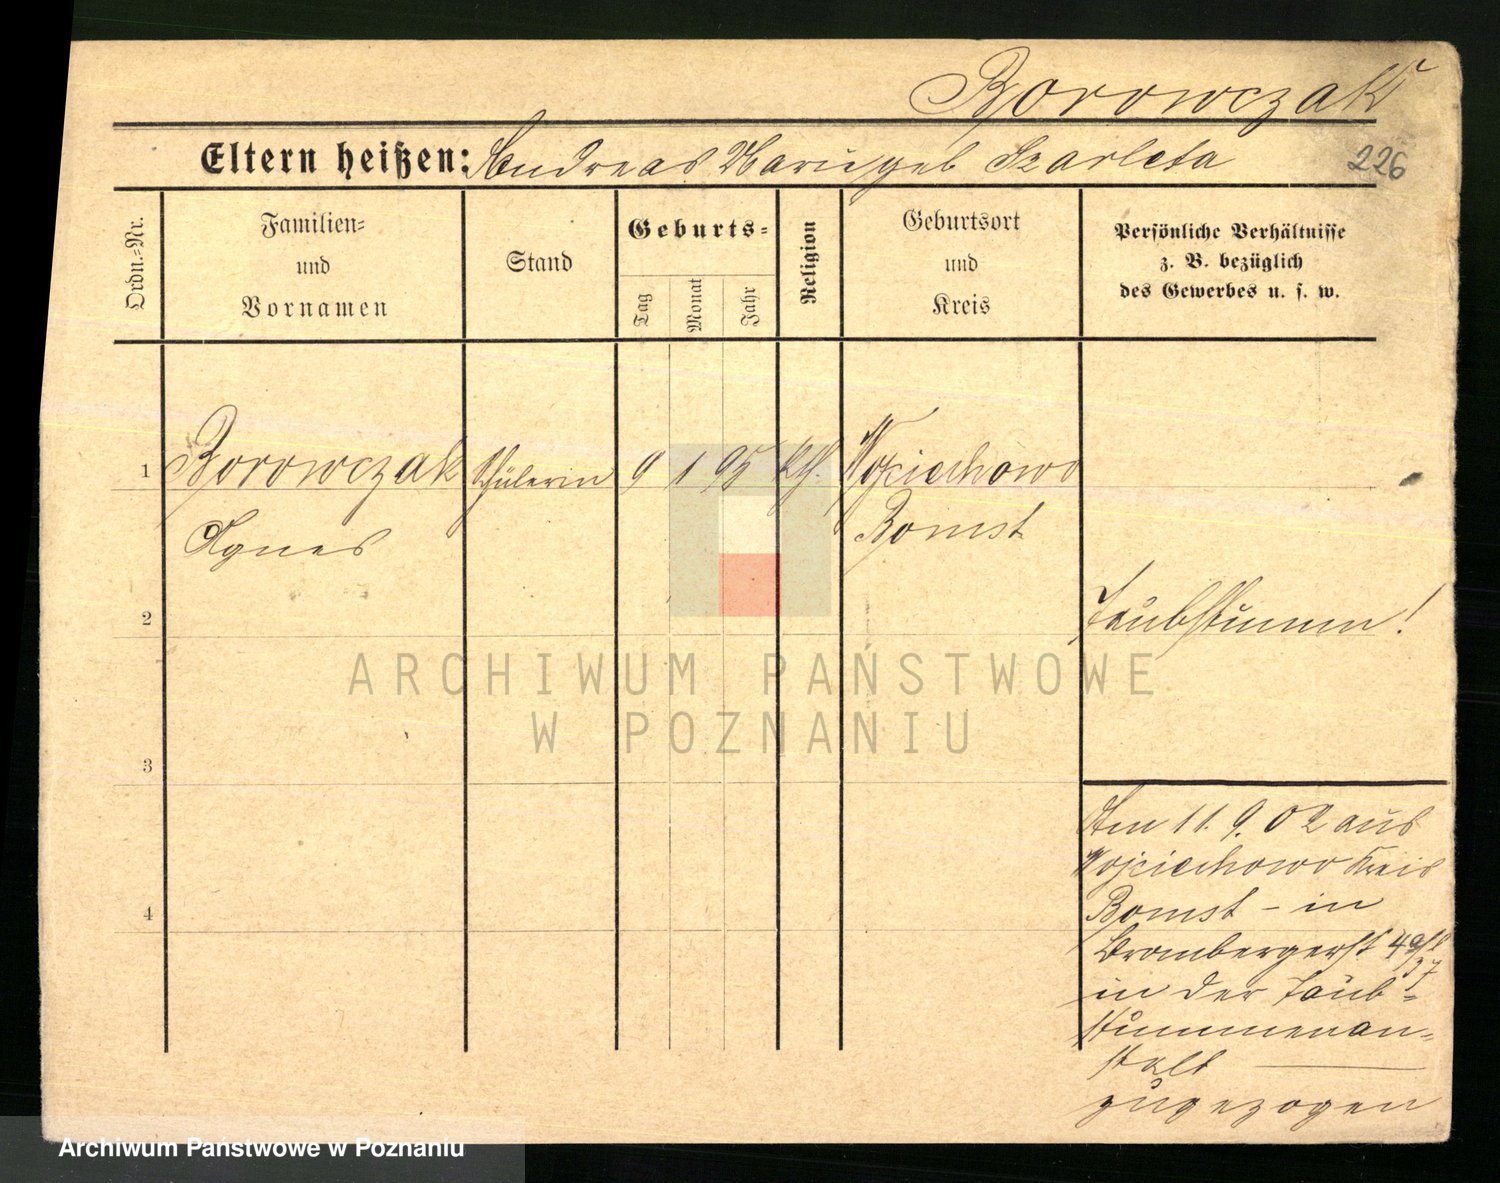 Borowczak
Eltern heißen: Andreas Marie geb Szarleta
226
Ordn.-Nr.
Familien-
und
Vornamen
Stand
Geburts-
Tag
Monat
Jahr
Religion
Geburtsort
und
Kreis
Persönliche Verhältnisse
z. B. bezüglich
des Gewerbes u. s. w.
1 Borowczak Schülerin 9 1 95 kth. Wojciechowo
Agnes
Bomst
2
Taubstumm!
3
4
Am 11. 9. 02 aus
Wojciechowo Kreis
Bomst – in
Brombergerst
in der Taub-
stummenan-
stalt
zugezogen
ARCHIWUM PAŃSTWOWE
W POZNANIU
Archiwum Państwowe w Poznaniu